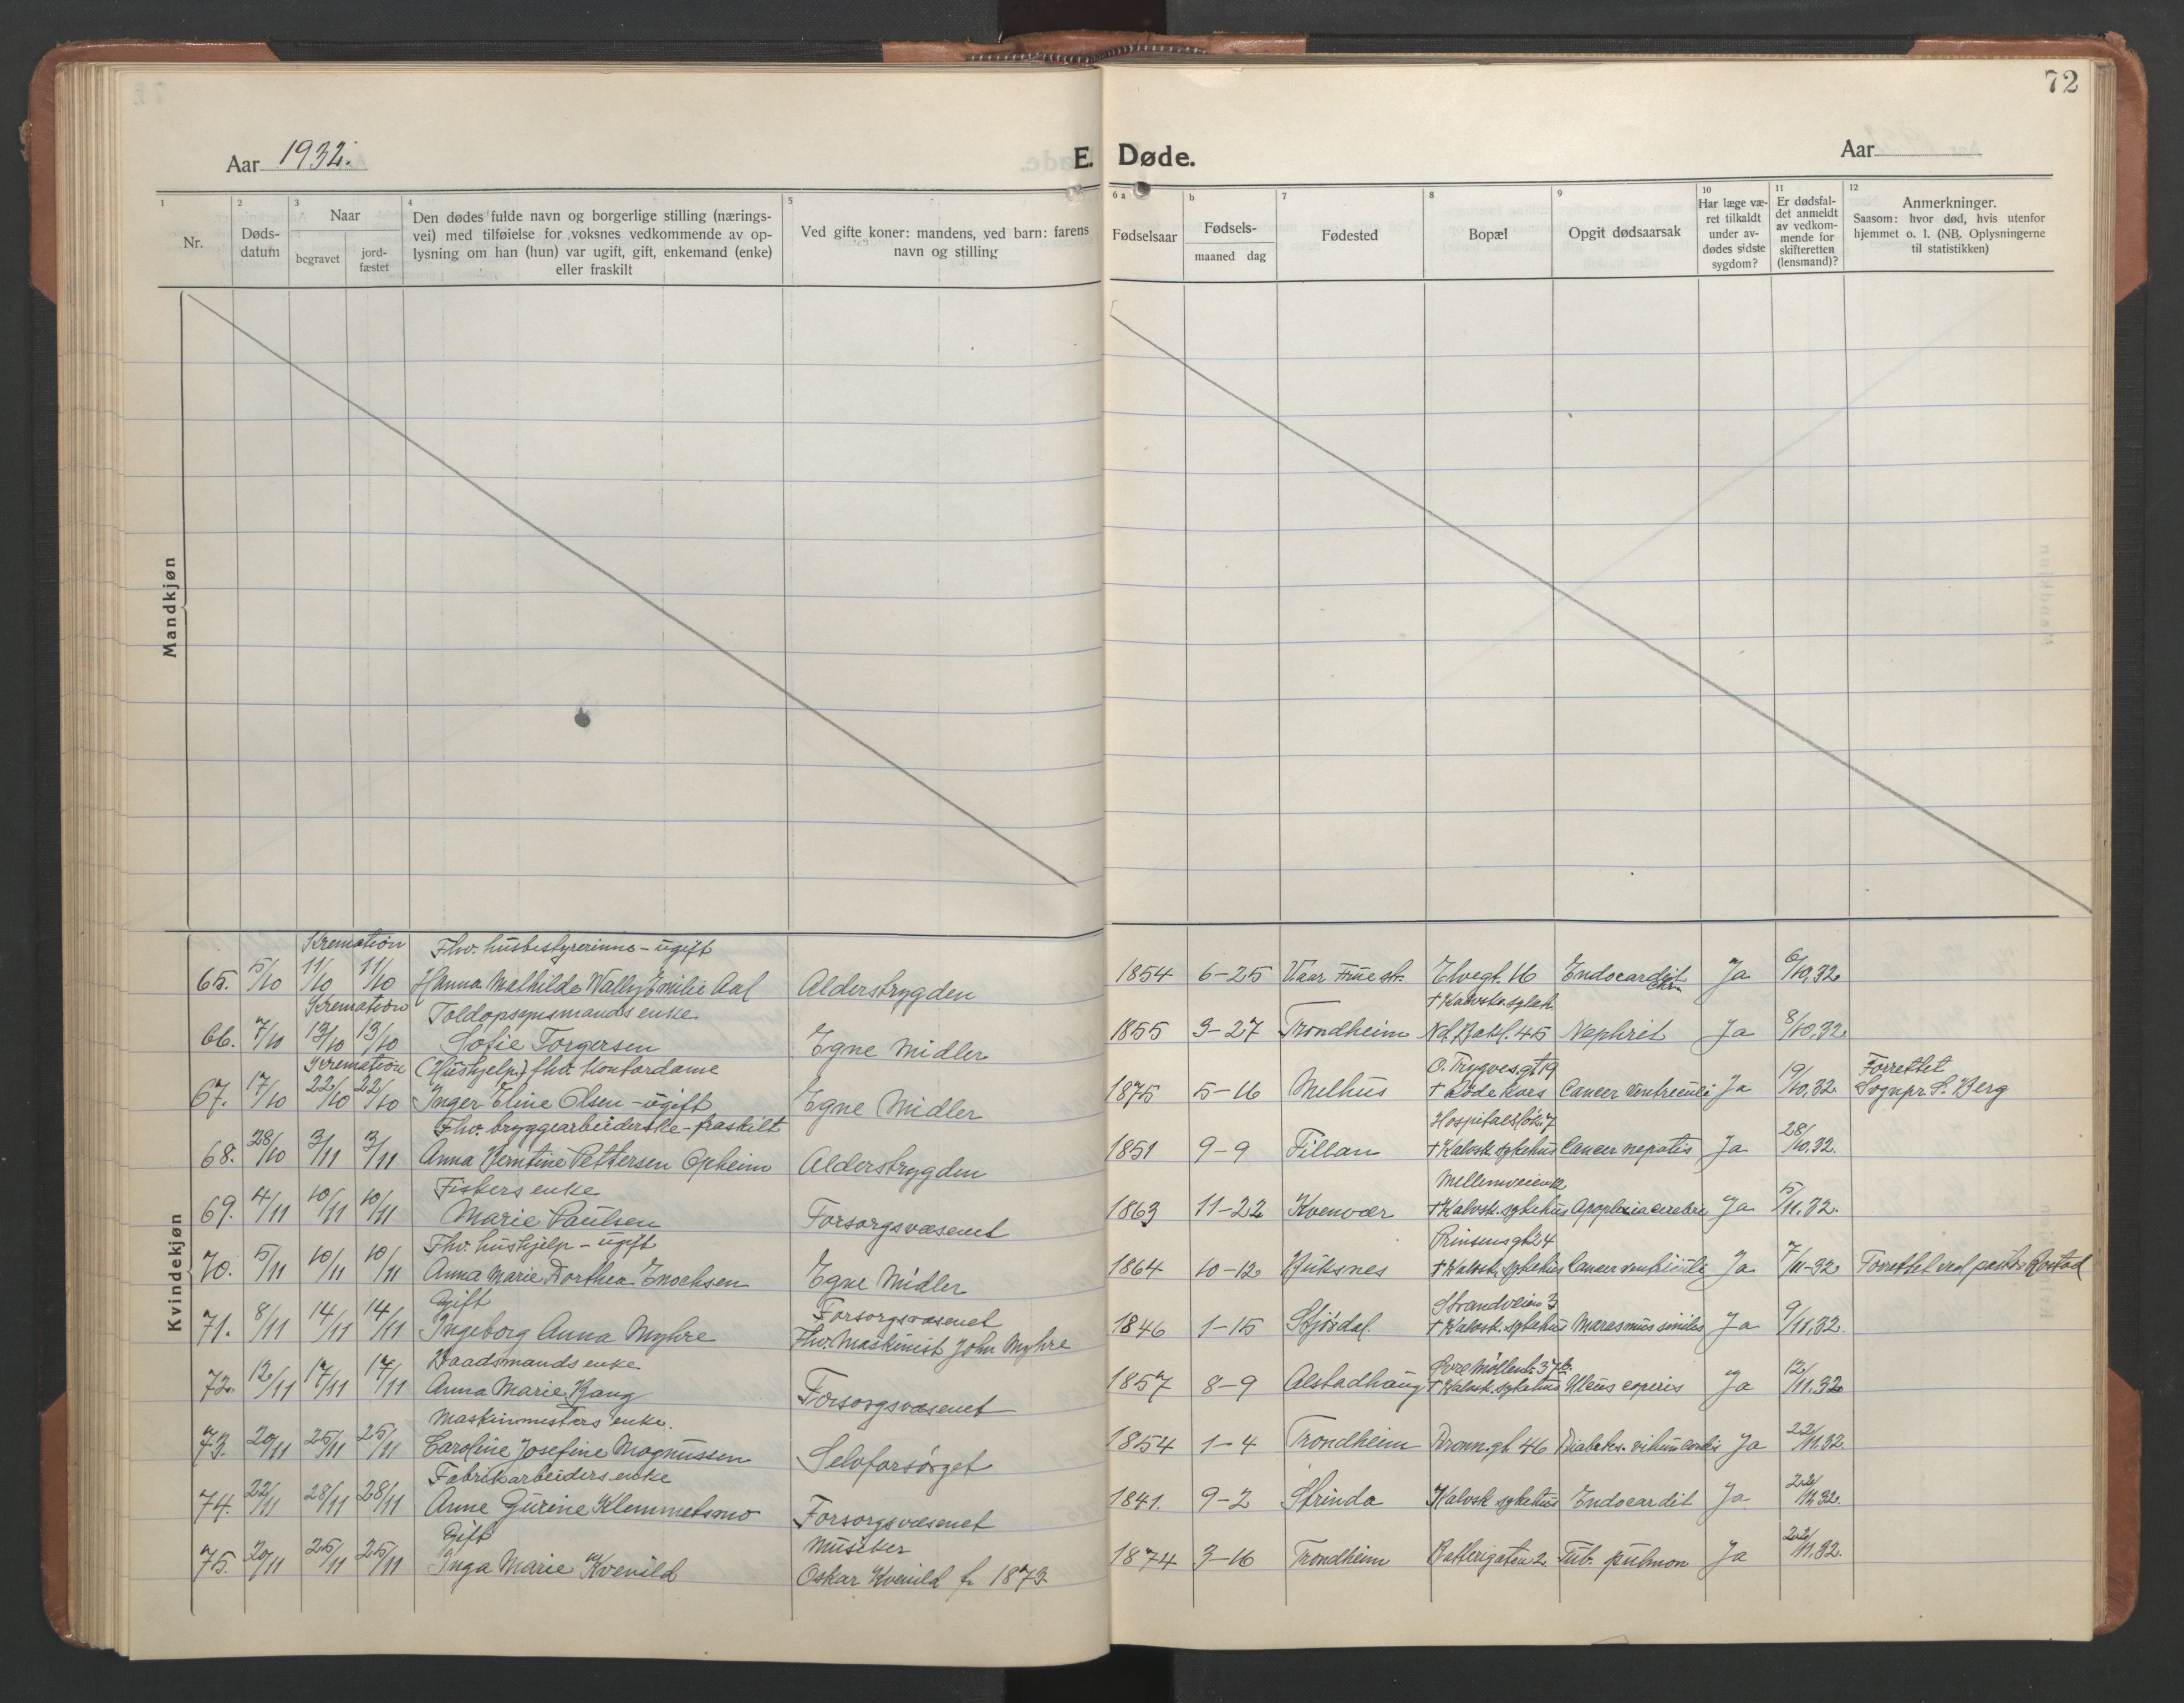 72
Aar 1932.
E. Døde.
Aar
1 2 3 4 5 6 a b 7 8 9 10 11 12
Nr.
Døds-
datum
Naar
begravet
jord-
fæstet
Den dødes fulde navn og borgerlige stilling (nærings-
vei) med tilføielse for voksnes vedkommende av op-
lysning om han (hun) var ugift, gift, enkemand (enke)
eller fraskilt
Ved gifte koner: mandens, ved barn: farens
navn og stilling
Fødselsaar
Fødsels-
maaned dag
Fødested
Bopæl
Opgit dødsaarsak
Har læge væ-
ret tilkaldt
under av-
dødes sidste
sygdom?
Er dødsfal-
det anmeldt
av vedkom-
mende for
skifteretten
(lensmand)?
Anmerkninger.
Saasom: hvor død, hvis utenfor
hjemmet o. l. (NB. Oplysningerne
til statistikken)
Mandkjøn
Kvindekjøn
Kremation Fhv. husbestyrerinne - ugift
65. 5/10 11/10 11/10 Hanna Mathilde Wally Emilie Aal Alderstrygden 1854 6-25 Vaar Frue sk. Elvegt. 16 Endocardit chr. Ja 6/10.32
Kremation Toldopsynsmands enke † Kalvsk. sykeh.
66. 7/10 13/10 13/10 Sofie Torgersen Egne Midler 1855 3-27 Trondheim Nd. Bakl. 45 Nephrit Ja 8/10.32.
Kremation (Hushjelp) fhv. kontordame O. Trygves. gt 19 Forrettet
67. 17/10 22/10 22/10 Inger Eline Olsen - ugift Egne Midler 1875 5-16 Melhus † Røde Kors Cancer Ventreculi Ja 19/10.32 Sognpr. S. Berg
Fhv. bryggearbeiderske - fraskilt Hospitalsløk. 7
68. 28/10 3/11 3/11 Anna Berntine Pettersen Opheim Alderstrygden 1851 9-9 Fillan † Kalvsk. sykehus Cancer hepatis Ja 28/10.32.
Fiskers enke Mellemveien 12
69. 4/11 10/11 10/11 Marie Paulsen Forsorgsvæsenet 1863 11-22 Kvenvær † Kalvsk. sykehus Apoplexia cerebri Ja 5/11.32.
Fhv. hushjelp - ugift Prinsensgt 24
70. 5/11 10/11 10/11 Anna Marie Dorthea Enochsen Egne Midler 1864 10-12 Buksnes † Kalvsk. sykehus Cancer ventriculi Ja 7/11-32 Forrettet ved pastor Rostad
Gift Forsorgsvæsenet Strandveien 3
71. 8/11 14/11 14/11 Ingeborg Anna Myhre Fhv. Maskinist John Myhre 1846 1-15 Stjørdal. † Kalvsk. sykehus Marasmus senilis Ja 9/11.32.
Baadsmands enke Øvre Møllenb. 37 b.
72. 12/11 17/11 17/11 Anna Marie Bang Forsorgsvæsenet 1857 8-9 Alstadhaug † Kalvsk. sykehus Ulcus Ja 12/11.32
Maskinmesters enke.
73. 20/11 25/11 25/11 Caroline Josefine Magnussen Selvforsørget 1854 1-4 Trondheim Dronn. gt. 46 Diabetes. vitium cordis Ja 22/11.32.
Fabrikarbeiders enke
74. 22/11 28/11 28/11 Anne Gurine Klemmetsmo Forsorgsvæsenet 1841. 9-2 Strinda Kalvsk sykehus Endocardit Ja 22/11.32.
Gift Musiker
75. 20/11 25/11 25/11 Inga Marie Kvenild Oskar Kvenild f. 1873 1874 3-16 Trondheim Batterigaten 2. Tub. pulmon Ja 22/11.32.